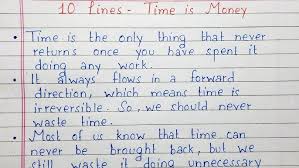 10 Lines - Time is Money
• Time is the only thing that never
returns once you have spent it
doing any work.
• It always flows in a forward
direction, which means time is
irreversible. So, we should never
waste time.
• Most of us know that time can
never be brought back, but we
still waste it doing unnecessary